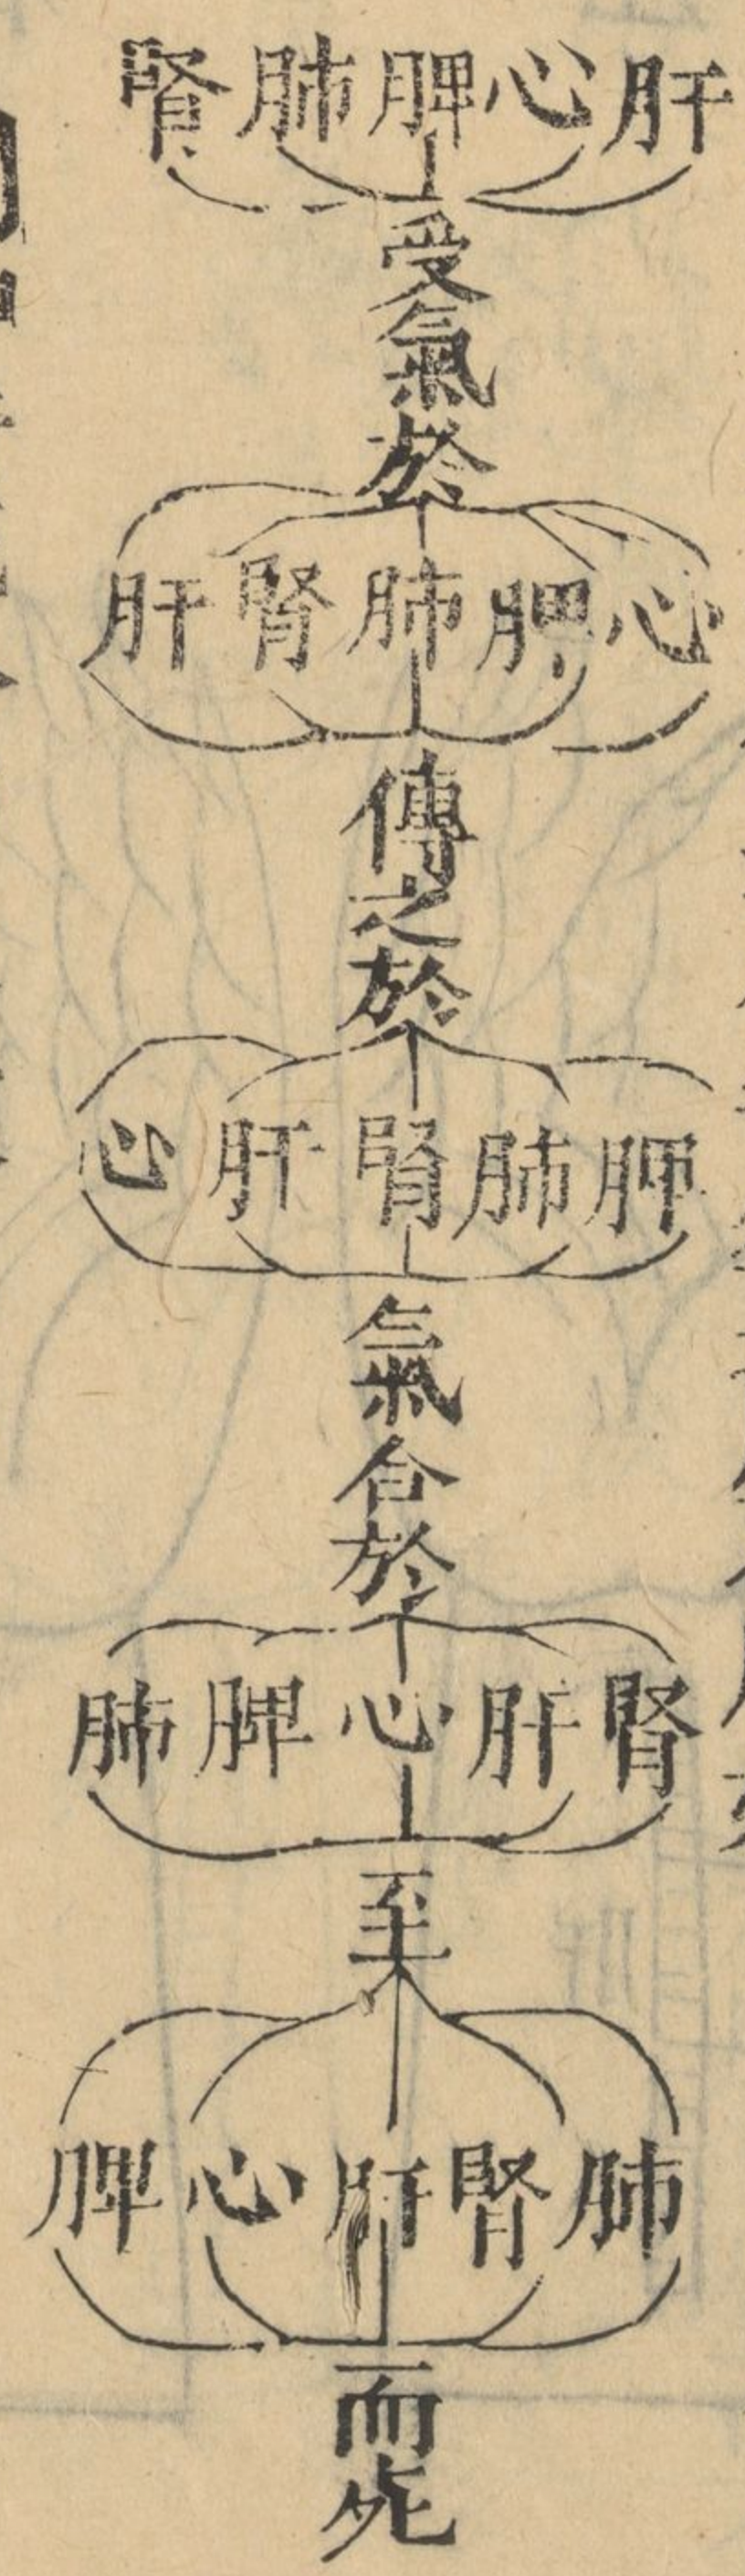 肝心脾肺腎
受氣於
心脾肺腎肝
傳之於
脾肺腎肝心
氣舍於
腎肝心脾肺
至
肺腎肝心脾
而死